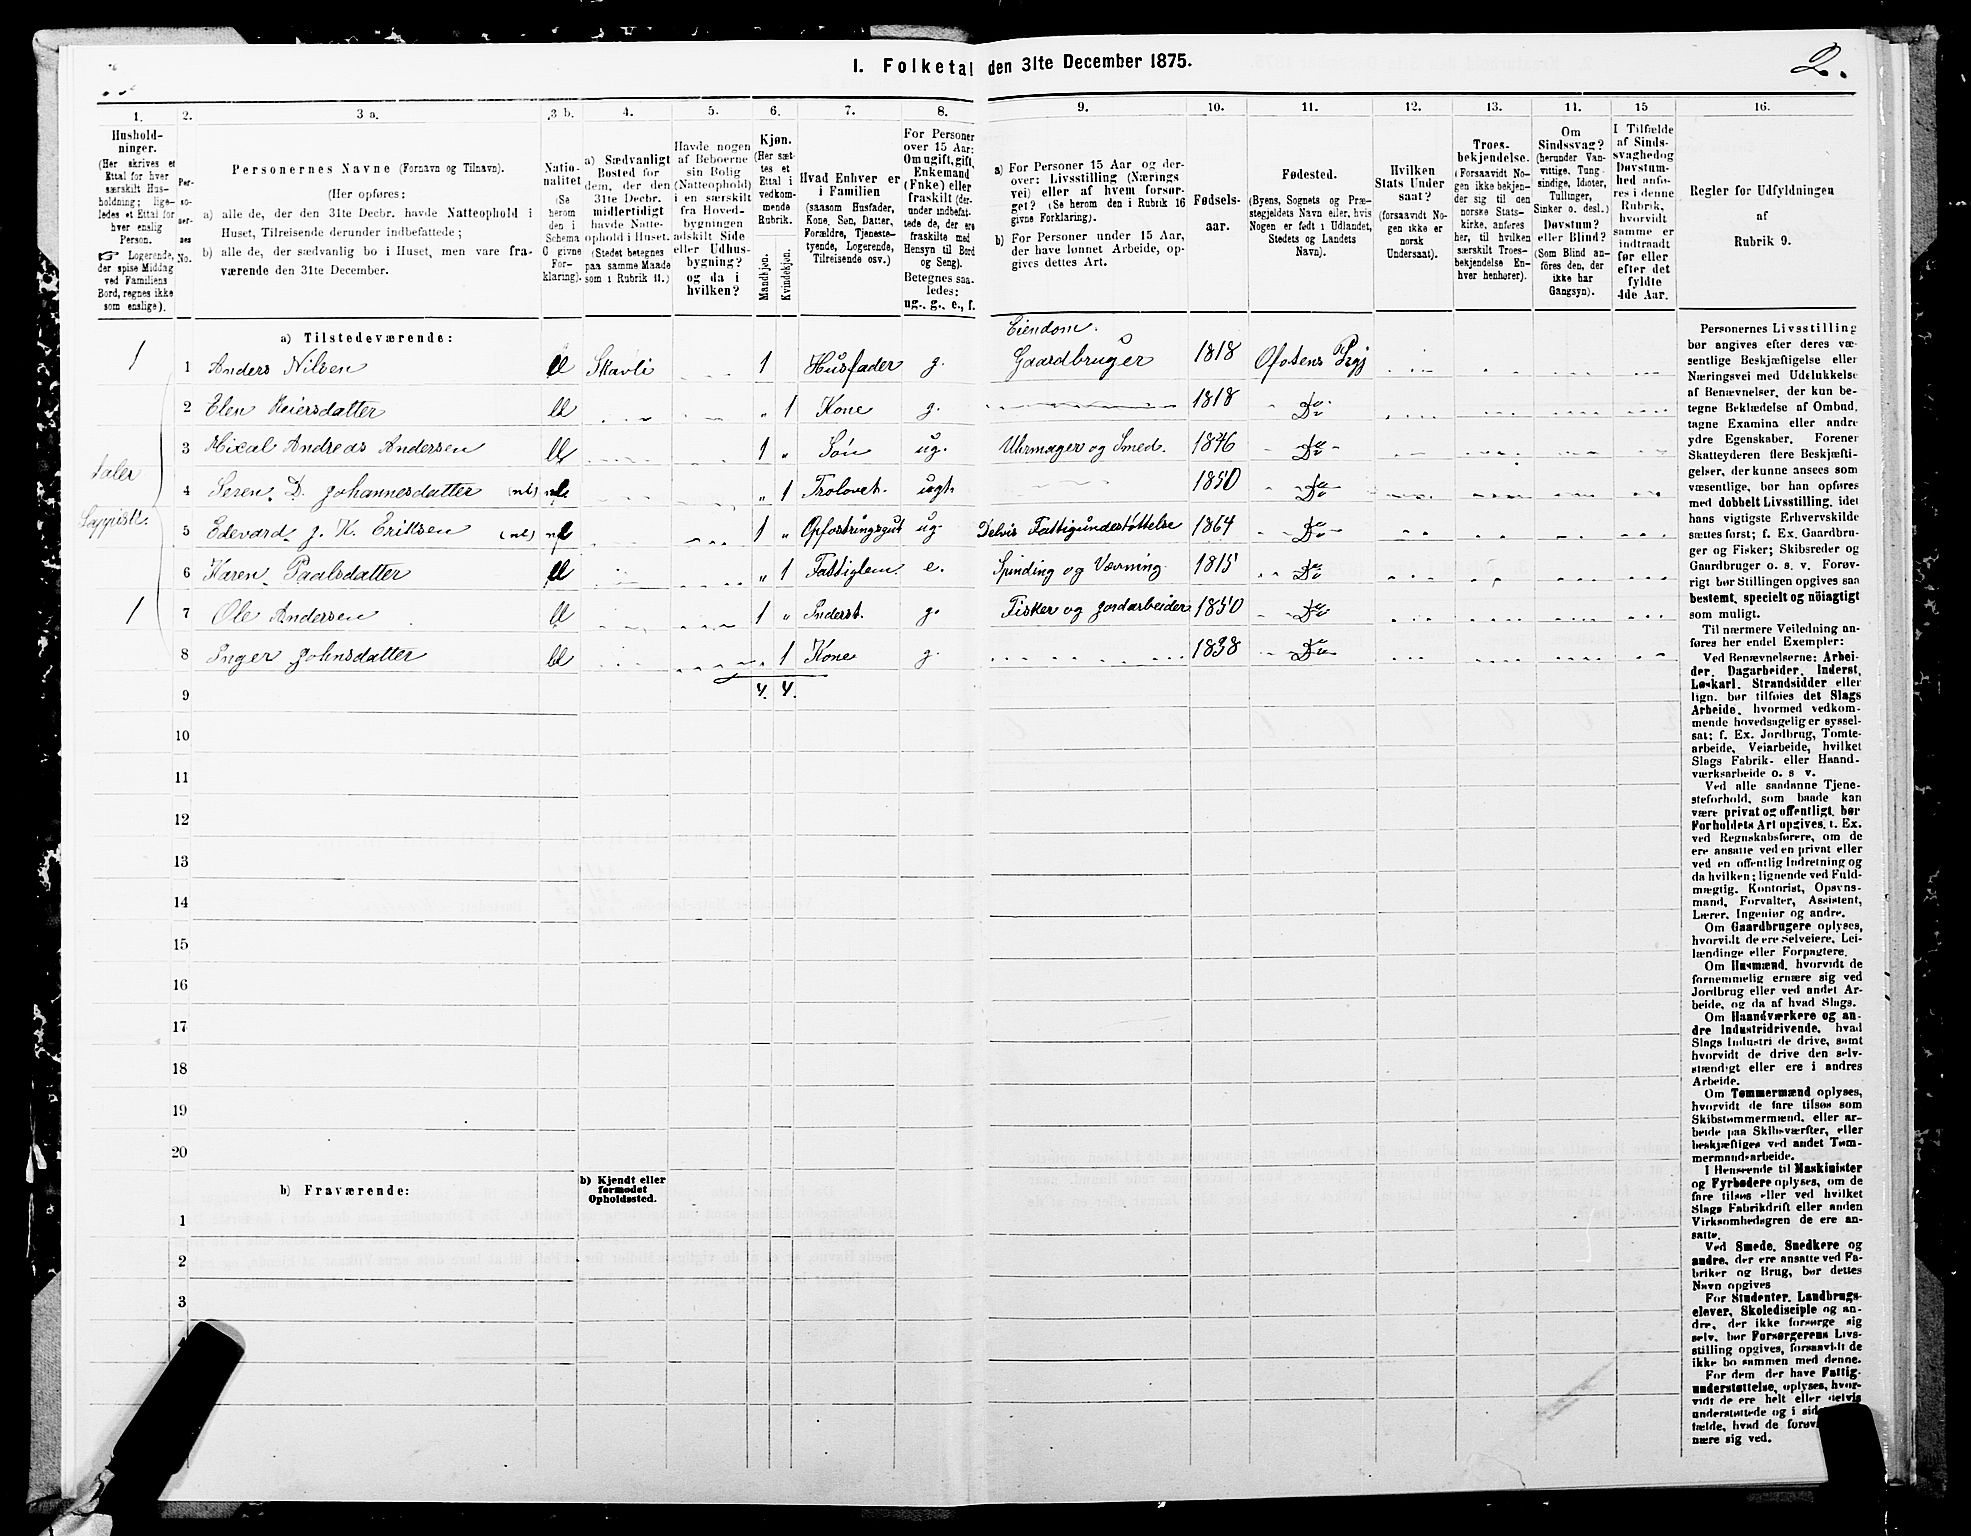 I. Folketal den 31te December 1875.
2.
1.
Hushold-
ninger.
(Her skrives et
Ettal for hver
særskilt Hus-
holdning; lige-
ledes et Ettal for
hver enslig
Person.
☞ Logerende,
der spise Middag
ved Familiens
Bord, regnes ikke
som enslige).
2.
Per-
so-
ner-
nes
No.
3 a.
Personernes Navne (Fornavn og Tilnavn).
(Her opføres:
a) alle de, der den 31te Decbr. havde Natteophold i
Huset, Tilreisende derunder indbefattede;
b) alle de, der sædvanlig bo i Huset, men vare fra-
værende den 31te December.
3 b.
Natio-
nalitet
(Se
herom
den i
Schema
C givne
For-
klaring).
4.
a) Sædvanligt
Bosted for
dem, der den
31te Decbr.
midlertidigt
havde Natte-
ophold i Huset.
(Stedet betegnes
paa samme Maade
som i Rubrik 11.)
5.
Havde nogen
af Beboerne
sin Bolig
(Natteophold)
i en særskilt
fra Hoved-
bygningen
adskilt Side
eller Udhus-
bygning?
og da i
hvilken?
6.
Kjøn.
(Her sæt-
tes et
Ettal i
vedkom-
mende
Rubrik.
Mandkjøn.
Kvindekjøn.
7.
Hvad Enhver er
i Familien
(saasom Husfader,
Kone, Søn, Datter,
Forældre, Tjeneste-
tyende, Logerende,
Tilreisende osv.)
8.
For Personer
over 15 Aar:
Om ugift, gift,
Enkemand
(Enke) eller
fraskilt (der-
under indbefat-
tede de, der ere
fraskilte med
Hensyn til Bord
og Seng).
Betegnes saa-
ledes:
ug., g., e., f.
9.
a) For Personer 15 Aar og der-
over: Livsstilling (Nærings-
vei) eller af hvem forsør-
get? (Se herom den i Rubrik 16
givne Forklaring).
b) For Personer under 15 Aar,
der have lønnet Arbeide, op-
gives dettes Art.
10.
Fødsels-
aar.
11.
Fødested.
(Byens, Sognets og Præ-
stegjeldets Navn eller, hvis
Nogen er født i Udlandet,
Stedets og Landets
Navn).
12.
Hvilken
Stats Under
saat?
(forsaavidt No-
gen ikke er
norsk
Undersaat).
13.
Troes-
bekjendelse.
(Forsaavidt No-
gen ikke bekjen-
der sig til den
norske Stats-
kirke, anføres
her, til hvilken
særskilt Troes-
bekjendelse En-
hver henhører).
11.
Om
Sindssvag?
(herunder Van-
vittige, Tung-
sindige, Idioter,
Tullinger,
Sinker o. desl.)
Døvstum?
eller Blind?
(Som Blind an-
føres den, der
ikke har
Gangsyn).
15
I Tilfælde
af Sinds-
svaghed og
Døvstum-
hed anfø-
res i denne
Rubrik,
hvorvidt
samme er
indtraadt
før eller
efter det
fyldte
4de Aar.
16.
Regler for Udfyldningen
af
Rubrik 9.
a) Tilstedeværende:
Eiendom.
1 1 Anders Nilsen Skavli 1 Husfader g. Gaardbruger 1818 Ofotens Prgj
2 Elen Reiersdatter „ 1 Kone g. 1818 Do
3 Mical Andreas Andersen 1 „ Søn ug. Uhrmager og Smed. 1846 Do
taler
4 Seren. D. Johannesdatter (nl) „ 1 Trolovet. ugt. 1850 Do
Lappisk.
5 Edevard J. K. Eriksen (nl) 1 „ Opfostringsgut ug. Delvis Fattigunderstøttelse 1864 Do
6 Karen Paalsdatter „ 1 Fattiglem. e. Spinding og Vævning 1815 Do
1 7 Ole Andersen 1 „ Inderst. g. Fisker og Jordarbeider 1850 Do
8 Inger Johnsdatter 1 Kone g. 1838 Do
9 4. 4.
10
11
12
13
14
15
16
17
18
19
20
b) Fraværende:
b) Kjendt eller
formodet
Opholdssted.
1
2
3
Personernes Livsstilling
bør angives efter deres væ-
sentlige Beskjæftigelse eller
Næringsvei med Udelukkelse
af Benævnelser, der kun be-
tegne Beklædelse af Ombud,
tagne Examina eller andre
ydre Egenskaber. Forener
Skatteyderen flere Beskjæfti-
gelser, der kunne ansees som
væsentlige, bør han opføres
med dobbelt Livsstilling, idet
hans vigtigste Erhvervskilde
sættes først; f. Ex. Gaardbru-
ger og Fisker; Skibsreder og
Gaardbruger o. s. v. Forøv-
rigt bør Stillingen opgives saa
bestemt, specielt og nöiagtigt
som muligt.
Til nærmere Veiledning an-
føres her endel Exempler:
Ved Benævnelserne: Arbei-
der, Dagarbeider, Inderst,
Løskarl, Strandsidder eller
lign. bør tilføies det Slags
Arbeide, hvormed vedkom-
mende hovedsagelig er syssel-
sat; f. Ex. Jordbrug, Tomte-
arbeide, Veiarbeide, hvilket
Slags Fabrik- eller Haand-
værksarbeide o. s. v.
Ved alle saadanne Tjene-
steforhold, som baade kan
være privat og offentligt, bør
Forholdets Art opgives, t. Ex.
ved Regnskabsførere, om de
ere ansatte ved en privat eller
ved en offentlig Indretning og
da hvilken; lignende ved Fuld-
mægtig, Kontorist, Opsyns-
mand, Forvalter, Assistent,
Lærer, Ingeniør og andre.
Om Gaardbrugere oplyses,
hvorvidt de ere Selveiere, Lei-
lændinge eller Forpagtere.
Om Husmænd, hvorvidt de
fornemmelig ernære sig ved
Jordbrug eller ved andet Ar-
beide, og da af hvad Slags.
Om Haandværkere og an-
dre Industridrivende, hvad
Slags Industri de drive, samt
hvorvidt de drive den selv-
stændigt eller ere i andres
Arbeide.
Om Tømmermænd oplyses,
hvorvidt de fare tilsøs som
Skibstømmermænd, eller ar-
beide paa Skibsværfter, eller
beskjæftiges ved andet Tøm-
mermandsarbeide.
I Henseende til Maskinister
og Fyrbødere oplyses, om de
fare tilsøs eller ved hvilket
Slags Fabrikdrift eller anden
Virksomhedsgren de ere an-
satte.
Ved Smede, Snedkere og
andre, der ere ansatte ved Fa-
briker og Brug, bør dettes
Navn opgives
For Studenter, Landbrugs-
elever, Skoledisciple og an-
dre, der ikke forsørge sig
selv, bør Forsørgerens Livs-
stilling opgives, forsaavidt de
ikke bo sammen med denne.
For dem der have Fattig-
understøttelse, oplyses, hvor-
vidt de ere helt eller delvis
understøttede og i sid
fælde, hvad de forøv
nære sig ved.